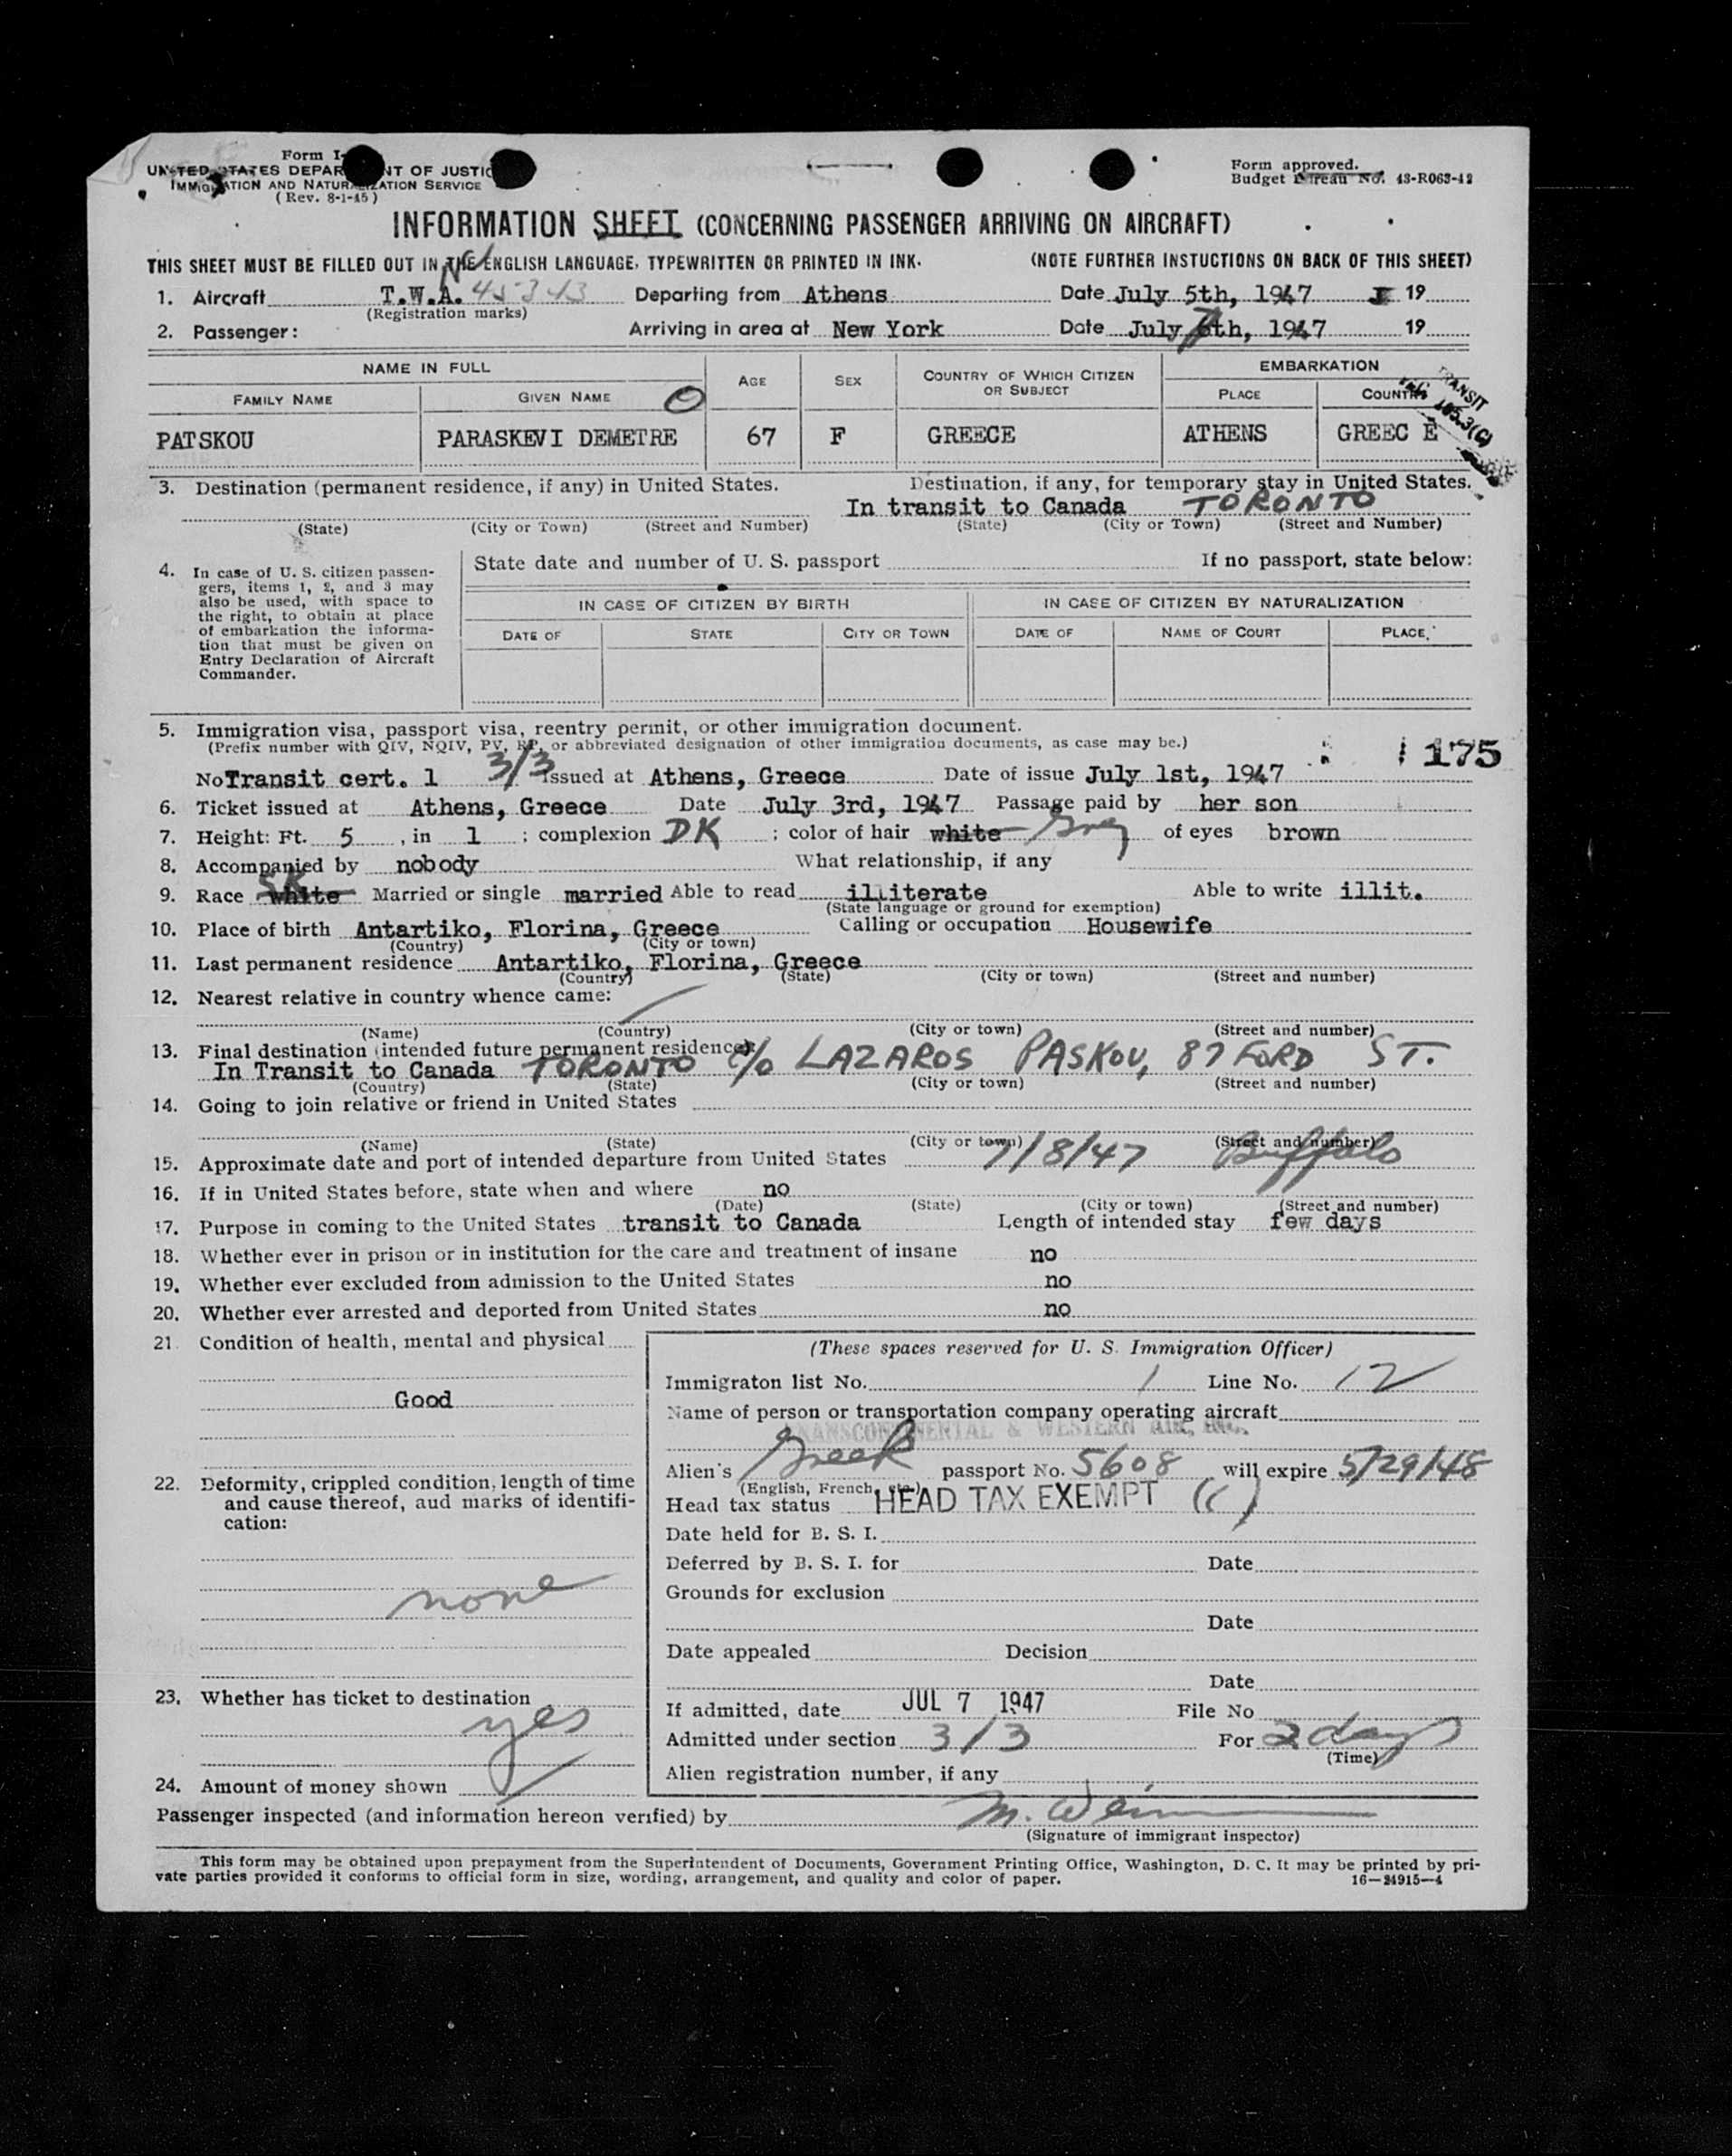 Form I-
UNITED STATES DEPAR NT OF JUSTIC
IMMIGRATION AND NATURALIZATION SERVICE
(Rev. 8-1-45)
Form approved.
Budget Bureau No. 43-R063-42
INFORMATION SHEET (CONCERNING PASSENGER ARRIVING ON AIRCRAFT)
THIS SHEET MUST BE FILLED OUT IN THE ENGLISH LANGUAGE, TYPEWRITTEN OR PRINTED IN INK. (NOTE FURTHER INSTUCTIONS ON BACK OF THIS SHEET)
1. Aircraft T.W.A. Departing from Athens Date July 5th, 1947 19
(Registration marks)
2. Passenger: Arriving in area at New York Date July 7th, 1947 19
NAME IN FULL AGE SEX COUNTRY OF WHICH CITIZEN OR SUBJECT EMBARKATION
FAMILY NAME GIVEN NAME PLACE COUNTRY
TRANSIT
PATSKOU PARASKEVI DEMETRE 67 F GREECE ATHENS GREEC E
3. Destination (permanent residence, if any) in United States. Destination, if any, for temporary stay in United States.
In transit to Canada TORONTO
(State) (City or Town) (Street and Number) (State) (City or Town) (Street and Number)
4. In case of U. S. citizen passen-
gers, items 1, 2, and 3 may
also be used, with space to
the right, to obtain at place
of embarkation the informa-
tion that must be given on
Entry Declaration of Aircraft
Commander.
State date and number of U. S. passport If no passport, state below:
IN CASE OF CITIZEN BY BIRTH IN CASE OF CITIZEN BY NATURALIZATION
DATE OF STATE CITY OR TOWN DATE OF NAME OF COURT PLACE
5. Immigration visa, passport visa, reentry permit, or other immigration document.
(Prefix number with QIV, NQIV, PV, RP, or abbreviated designation of other immigration documents, as case may be.)
175
No Transit cert. 1 3/3 Issued at Athens, Greece Date of issue July 1st, 1947
6. Ticket issued at Athens, Greece Date July 3rd, 1947 Passage paid by her son
7. Height: Ft. 5, in 1; complexion DK; color of hair white Grey of eyes brown
8. Accompanied by nobody What relationship, if any
9. Race white Married or single married Able to read illiterate Able to write illit.
(State language or ground for exemption)
10. Place of birth Antartiko, Florina, Greece Calling or occupation Housewife
(Country) (City or town)
11. Last permanent residence Antartiko, Florina, Greece
(Country) (State) (City or town) (Street and number)
12. Nearest relative in country whence came:
(Name) (Country) (City or town) (Street and number)
13. Final destination (intended future permanent residence):
In Transit to Canada TORONTO c/o LAZAROS PASKOU, 87 FORD ST.
(Country) (State) (City or town) (Street and number)
14. Going to join relative or friend in United States
(Name) (State) (City or town) (Street and number)
15. Approximate date and port of intended departure from United States 7/8/47 Buffalo
16. If in United States before, state when and where no
(Date) (State) (City or town) (Street and number)
17. Purpose in coming to the United States transit to Canada Length of intended stay few days
18. Whether ever in prison or in institution for the care and treatment of insane no
19. Whether ever excluded from admission to the United States no
20. Whether ever arrested and deported from United States no
21. Condition of health, mental and physical
Good
22. Deformity, crippled condition, length of time
and cause thereof, aud marks of identifi-
cation:
none
23. Whether has ticket to destination
yes
24. Amount of money shown
(These spaces reserved for U. S. Immigration Officer)
Immigraton list No. 1 Line No. 12
Name of person or transportation company operating aircraft
TRANSCONTINENTAL & WESTERN AIR, INC.
Alien's Greek passport No. 5608 will expire 5/29/48
(English, French, etc.)
Head tax status HEAD TAX EXEMPT (c)
Date held for B. S. I.
Deferred by B. S. I. for Date
Grounds for exclusion
Date
Date appealed Decision
Date
If admitted, date JUL 7 1947 File No
Admitted under section 3/3 For 2 days
(Time)
Alien registration number, if any
Passenger inspected (and information hereon verified) by
(Signature of immigrant inspector)
This form may be obtained upon prepayment from the Superintendent of Documents, Government Printing Office, Washington, D. C. It may be printed by pri-
vate parties provided it conforms to official form in size, wording, arrangement, and quality and color of paper. 16—24915—4